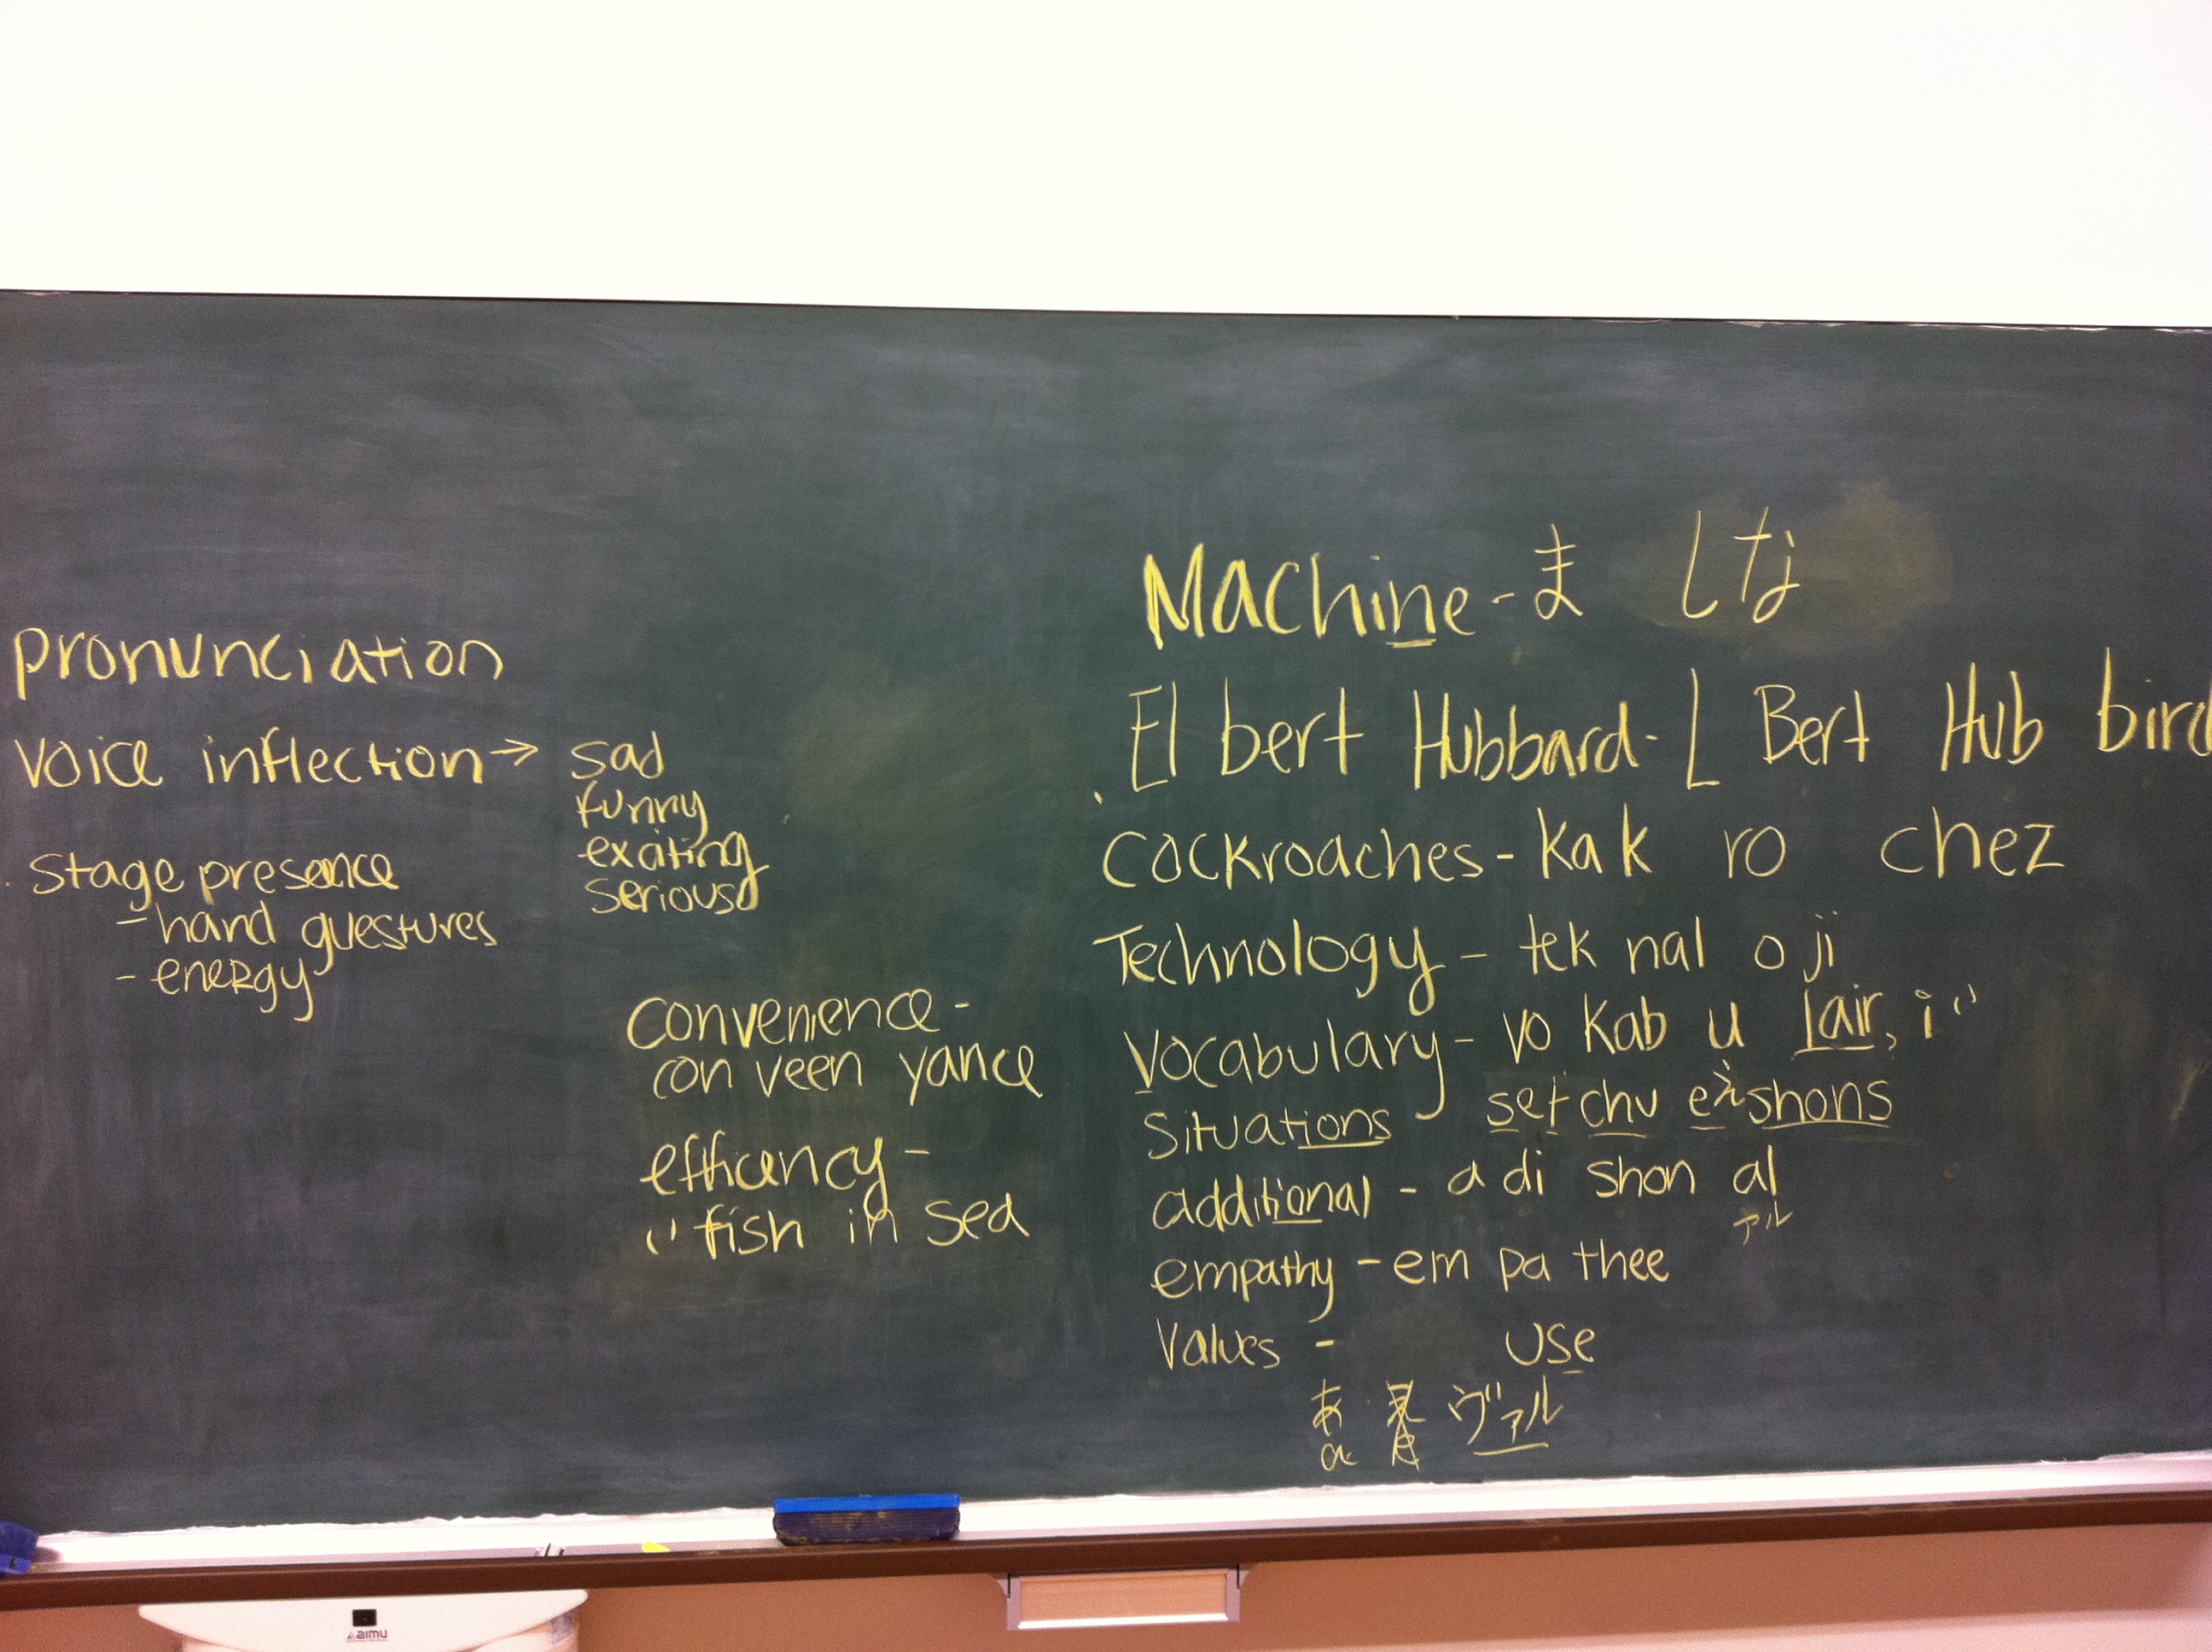 pronunciation
voice inflection → sad
funny
exciting
serious
stage presence
- hand guestures
- energy
convenience -
con veen yance
efficency -
" fish in sea
Machine - ま し
El bert Hubbard - L Bert Hub bird
cockroaches - kak ro chez
Technology - tek nal o ji
vocabulary - vo kab u lair, i "
situations set chu e shons
additional - a di shon al
アル
empathy - em pa thee
values - use
あ ヴァル
a
aimu